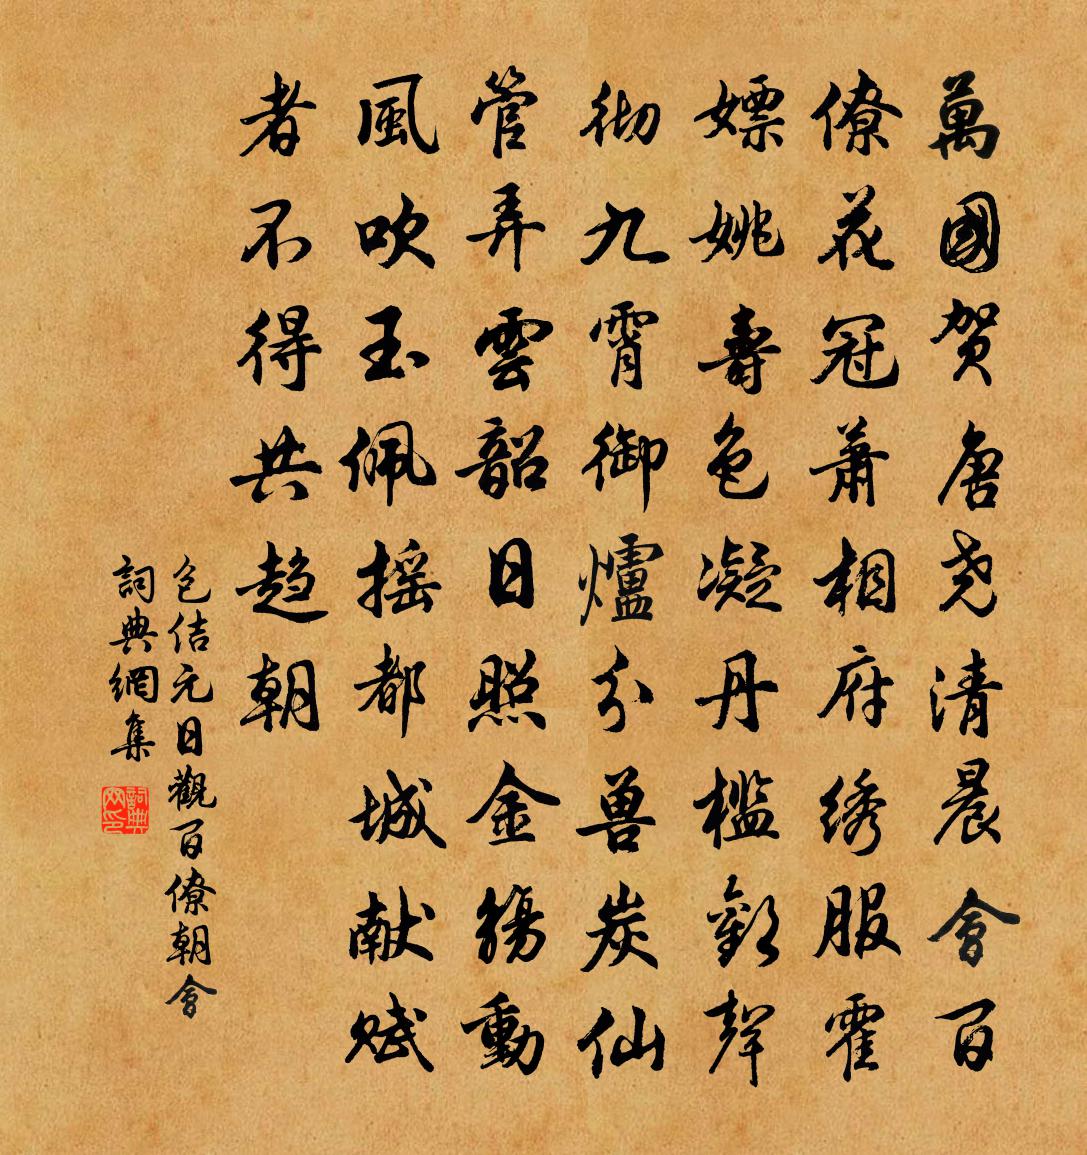 萬國賀唐尧清晨會百
僚花冠萧相府绣服霍
嫖姚壽色凝丹槛歡聲
彻九霄御爐分兽炭仙
管弄雲韶日照金觴動
風吹玉佩摇都城献赋
者不得共趋朝
包佶元日觀百僚朝會
詞典網集